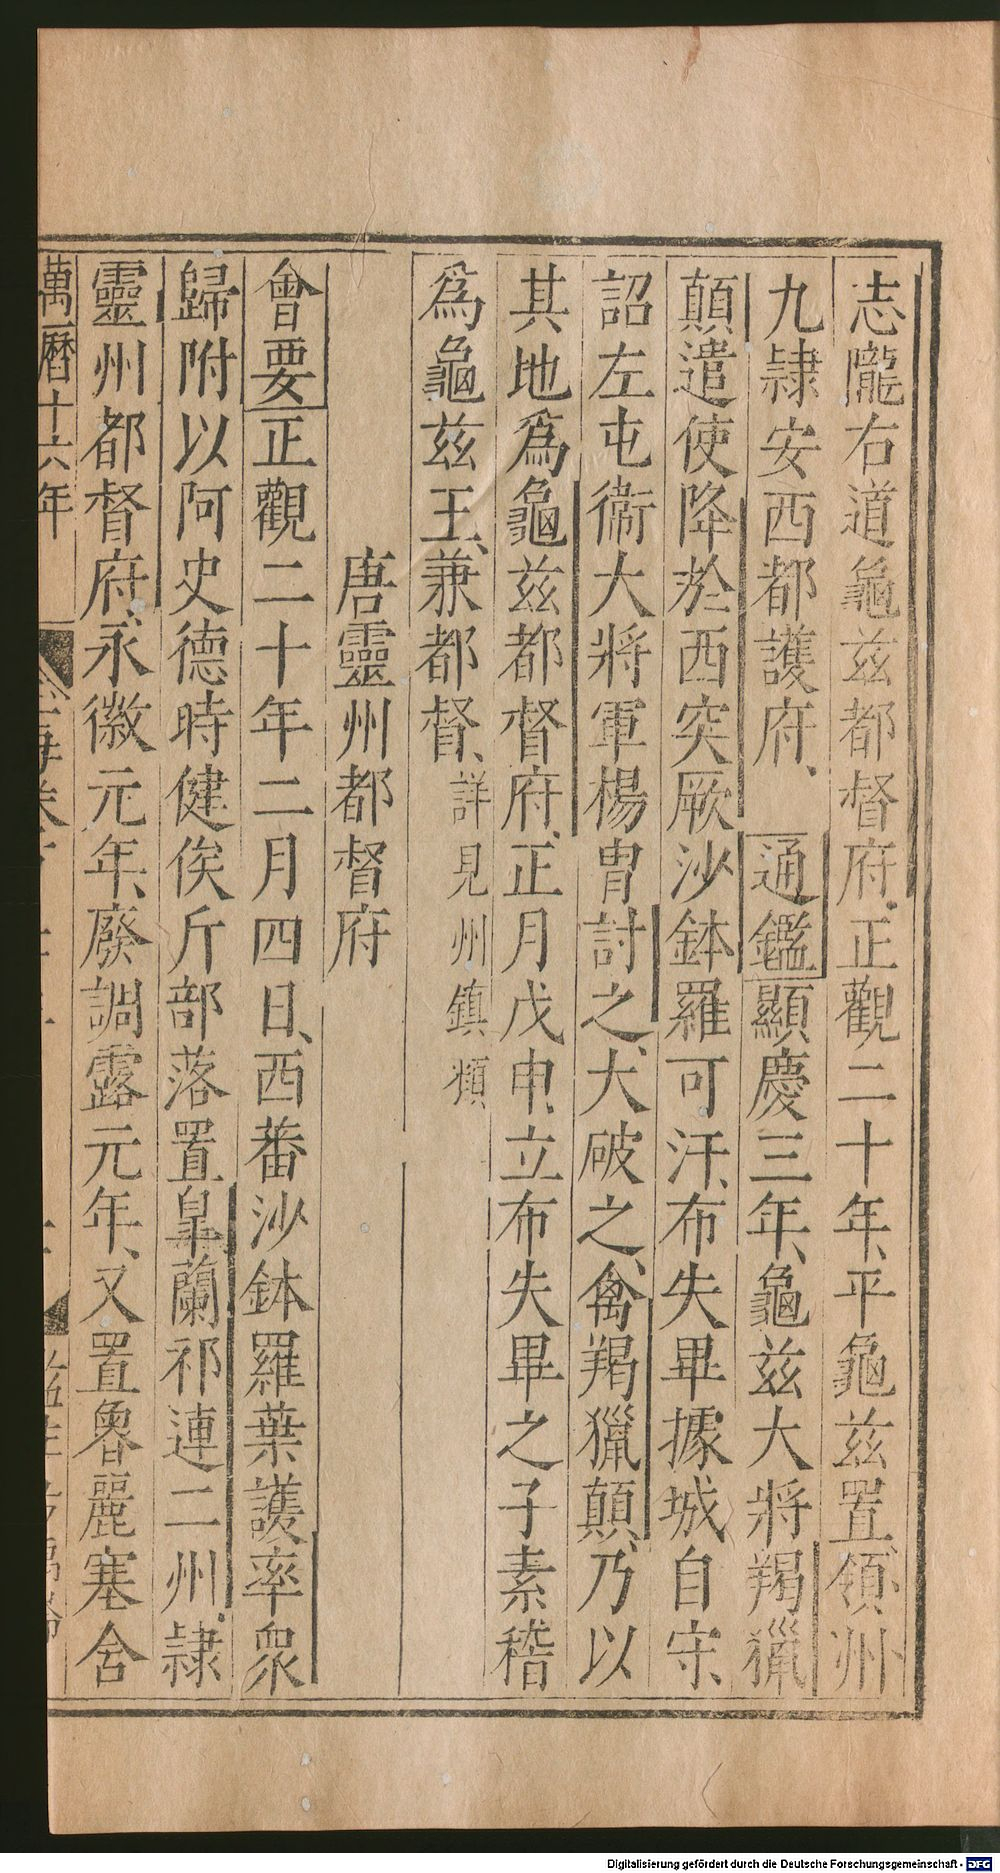 志隴右道龜茲都督府正觀二十年、平龜茲置、領州
九隸安西都護府、　通鑑顯慶三年、龜茲大將羯獵
顛遣使降於西突厥沙鉢羅可汗、布失畢據城自守、
詔左屯衞大將軍楊胄討之、大破之、禽羯獵顛、乃以
其地爲龜茲都督府、正月戊申、立布失畢之子素稽
爲龜茲王、兼都督、詳見州鎮類
唐靈州都督府
會要正觀二十年二月四日、西蕃沙鉢羅葉護率衆
歸附以阿史德時健俟斤部落置臯蘭祁連二州、隸
靈州都督府、永徽元年、廢調露元年、又置魯麗塞含
萬曆十六年
Digitalisierung gefördert durch die Deutsche Forschungsgemeinschaft - DFG